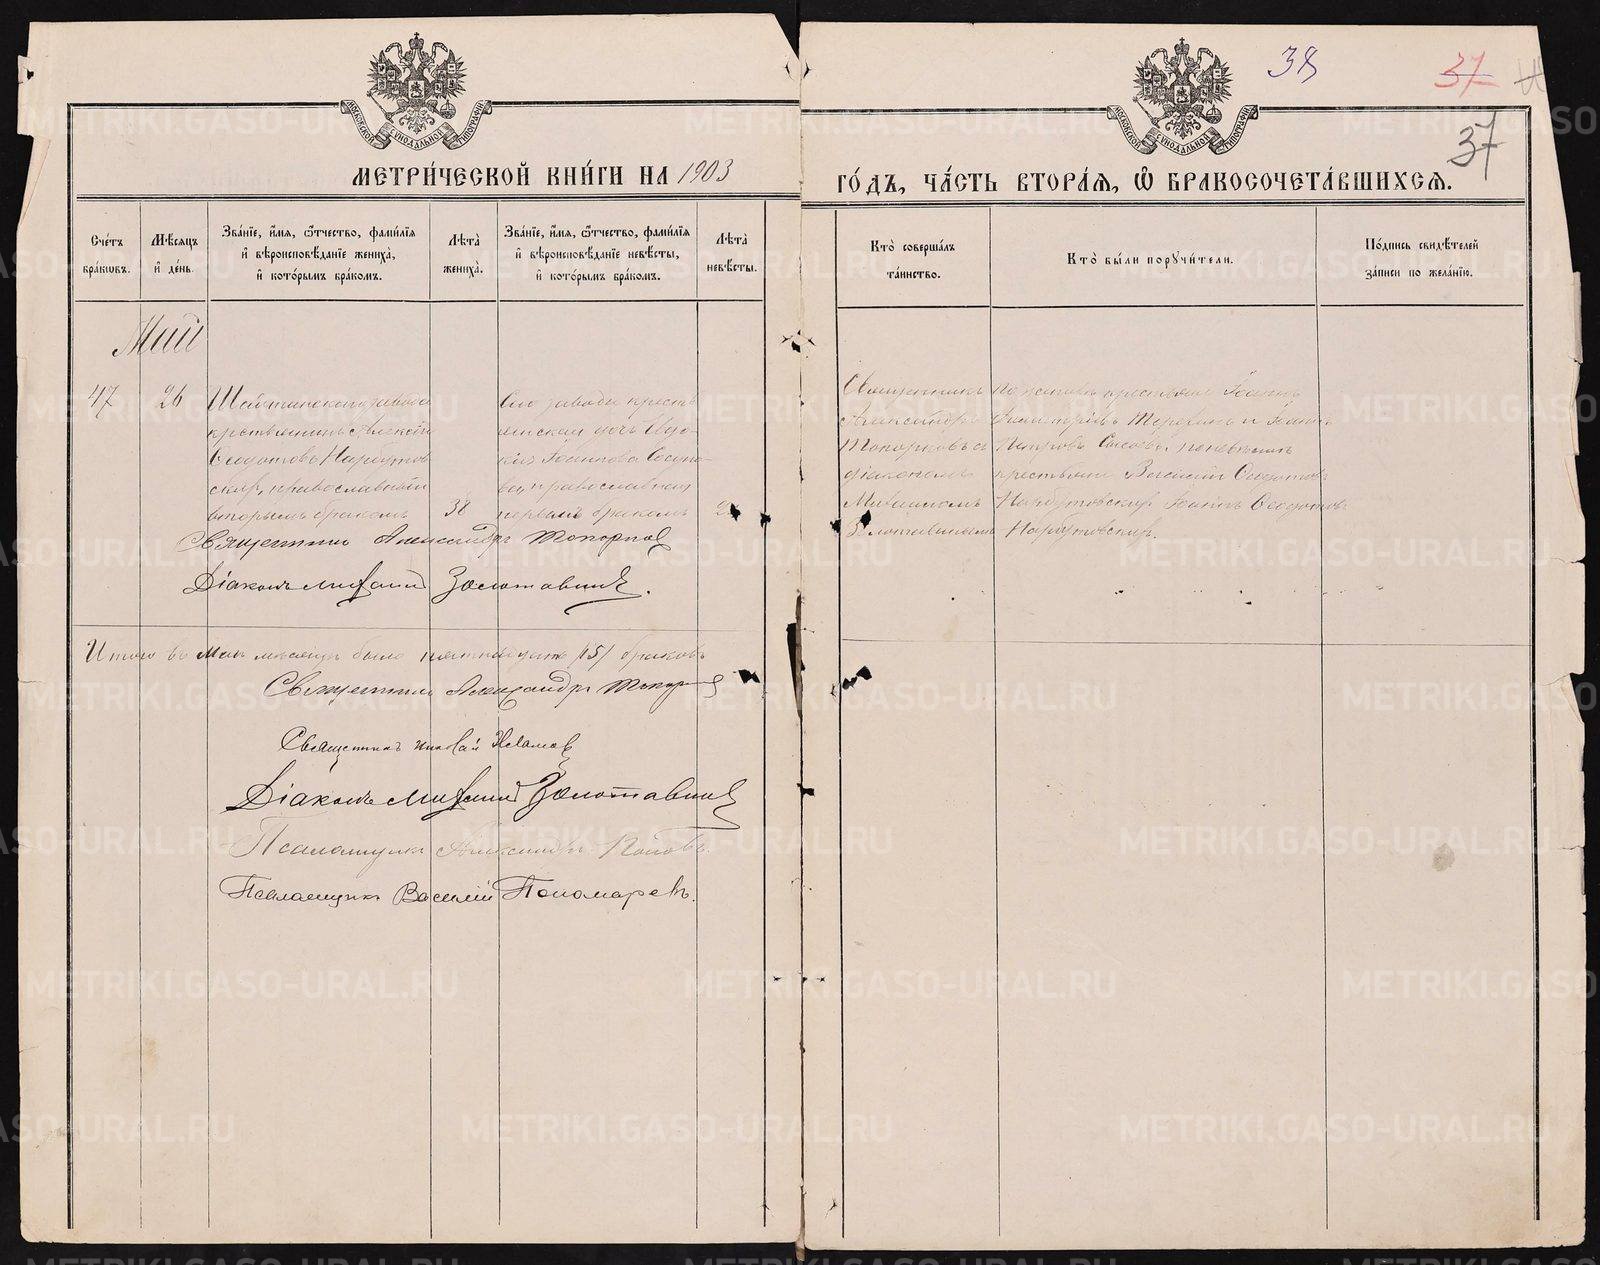 38
37
37
МОСКОВСКОЙ СѴНОДАЛЬНОЙ ТИПОГРАФІИ
МОСКОВСКОЙ СѴНОДАЛЬНОЙ ТИПОГРАФІИ
МЕТРИ́ЧЕСКОЙ КНИ́ГИ НА 1903
ГО́ДЪ, ЧА́СТЬ ВТОРА́Я, Ѽ БРАКОСОЧЕТА́ВШИХСЯ.
Сче́тъ бра́кѡвъ.
Мѣ́сяцъ и҆ де́нь.
Зва́нїе, и҆́мя, ѻ҆́тчество, фами́лїя и҆ вѣроисповѣ́данїе жениха̀, и҆ кото́рымъ бра́комъ.
Лѣ́та жениха̀.
Зва́нїе, и҆́мя, ѻ҆́тчество, фами́лїя и҆ вѣроисповѣ́данїе невѣ́сты, и҆ кото́рымъ бра́комъ.
Лѣ́та невѣ́сты.
Кто̀ соверша́лъ та́инство.
Кто̀ бы́ли порꙋчи́тели.
По́дпись свидѣ́телей за́писи по жела́нїю.
Май
47
26
Шайтанскаго завода
крестьянинъ Алексій
Ѳедотовъ Нарбутов
скихъ, православный
вторымъ бракомъ
38
Сего завода кресть
янская дочь Евдо
кія Іоаннова
ва, православная
первымъ бракомъ
Священникъ
Александръ
Топорковъ съ
діакономъ
Михаиломъ
Золотавинымъ
По женихѣ крестьяне Іоаннъ
Димитріевъ и Іоаннъ
Петровъ по невѣстѣ
крестьяне Василій Ѳедотовъ
Нарбутовскихъ Іоаннъ Ѳедотовъ
Нарбутовскихъ.
Священникъ Александръ Топорковъ
Діаконъ Михаилъ Золотавинъ.
Итого въ Маѣ мѣсяцѣ было пятнадцать /15/ браковъ
Священникъ Александръ Топорковъ
Священникъ Николай
Діаконъ Михаилъ Золотавинъ
Псаломщикъ Александръ Поповъ.
Псаломщикъ Василій Пономаревъ.
METRIKI.GASO-URAL.RU